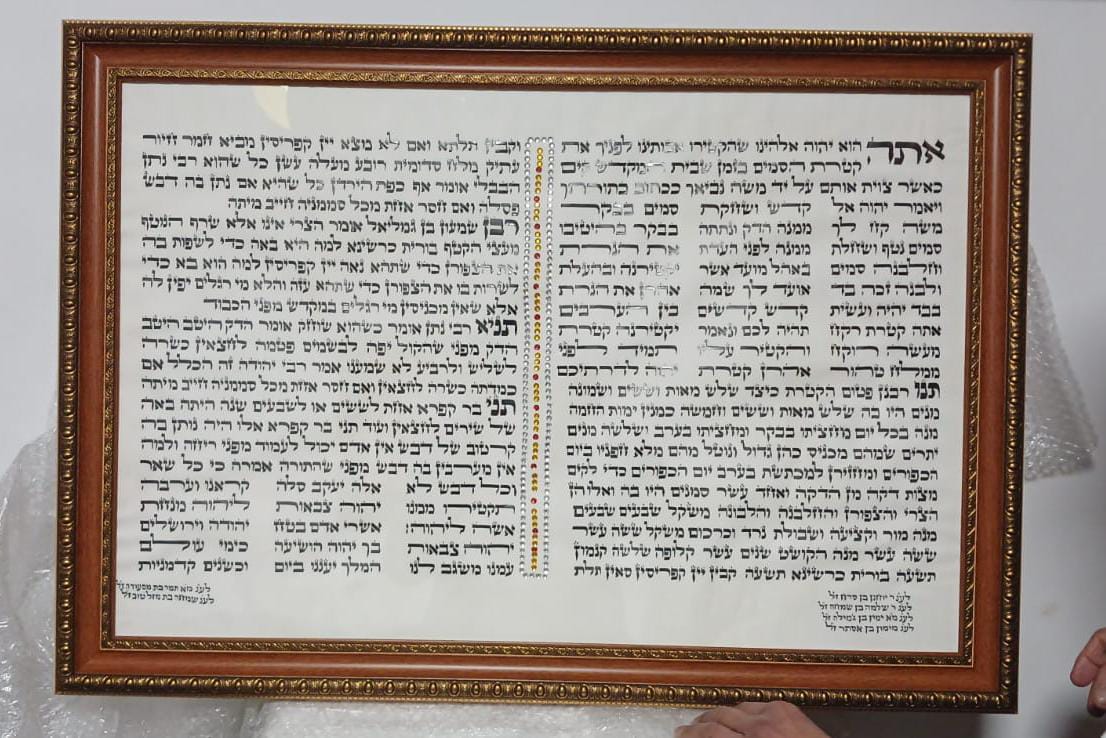 אתה הוא יהוה אלהינו שהקטירו אבותינו לפניך את
קטרת הסמים בזמן שבית המקדש קים
כאשר צוית אותם על יד משה נביאך ככתוב בתורתך
ויאמר יהוה אל
משה קח לך
סמים נטף ושחלת
וחלבנה סמים
ולבנה זכה בד
בבד יהיה ועשית
אתה קטרת רקח
מעשה רוקח
ממלח טהור
קדש ושחקת
ממנה הדק ונתתה
ממנה לפני העדת
באהל מועד אשר
אועד לך שמה
קדש קדשים
תהיה לכם ונאמר
והקטיר עליו
אהרן קטרת
סמים בבקר
בבקר בהיטיבו
את הנרת
יקטירנה ובהעלת
אהרן את הנרת
בין הערבים
יקטירנה קטרת
תמיד לפני
יהוה לדרתיכם
תנו רבנן פטום הקטרת כיצד שלש מאות וששים ושמונה
מנים היו בה שלש מאות וששים וחמשה כמנין ימות החמה
מנה בכל יום מחציתו בבקר ומחציתו בערב ושלשה מנים
יתרים שמהם מכניס כהן גדול ונוטל מהם מלא חפניו ביום
הכפורים ומחזירן למכתשת בערב יום הכפורים כדי לקים
מצות דקה מן הדקה ואחד עשר סמנים היו בה ואלו הן
הצרי והצפורן והחלבנה והלבונה משקל שבעים שבעים
מנה מור וקציעה ושבולת נרד וכרכום משקל ששה עשר
ששה עשר מנה הקושט שנים עשר קלופה שלשה קנמון
תשעה בורית כרשינא תשעה קבין יין קפריסין סאין תלת
לעג ר יוחנן בן פרח זל
לעג ר שלמה בן שמחה זל
לעג מא ימין בן ג'מילה זל
לעג מימון בן אסתר זל
וקבין תלתא ואם לא מצא יין קפריסין מביא חמר חיור
עתיק מלח סדומית רובע מעלה עשן כל שהוא רבי נתן
הבבלי אומר אף כפת הירדן כל שהיא אם נתן בה דבש
פסלה ואם חסר אחת מכל סממניה חייב מיתה
רבן שמעון בן גמליאל אומר הצרי אינו אלא שרף הנוטף
מעצי הקטף בורית כרשינא למה היא באה כדי לשפות בה
את הצפורן כדי שתהא נאה יין קפריסין למה הוא בא כדי
לשרות בו את הצפורן כדי שתהא עזה והלא מי רגלים יפין לה
אלא שאין מכניסין מי רגלים במקדש מפני הכבוד
תניא רבי נתן אומר כשהוא שוחק אומר הדק היטב היטב
הדק מפני שהקול יפה לבשמים פטמה לחצאין כשרה
לשליש ולרביע לא שמענו אמר רבי יהודה זה הכלל אם
כמדתה כשרה לחצאין ואם חסר אחת מכל סממניה חייב מיתה
תני בר קפרא אחת לששים או לשבעים שנה היתה באה
של שירים לחצאין ועוד תני בר קפרא אלו היה נותן בה
קרטוב של דבש אין אדם יכול לעמוד מפני ריחה ולמה
אין מערבין בה דבש מפני שהתורה אמרה כי כל שאר
וכל דבש לא
תקטירו ממנו
אשה ליהוה:
יהוה צבאות
עמנו משגב לנו
אלה יעקב סלה
יהוה צבאות
אשרי אדם בטח
בך יהוה הושיעה
המלך יעננו ביום
קראנו וערבה
ליהוה מנחת
יהודה וירושלים
כימי עולם
וכשנים קדמניות
לעג מא תמר בת מסעודה זל
לעג שמחר בת מזל טוב זל